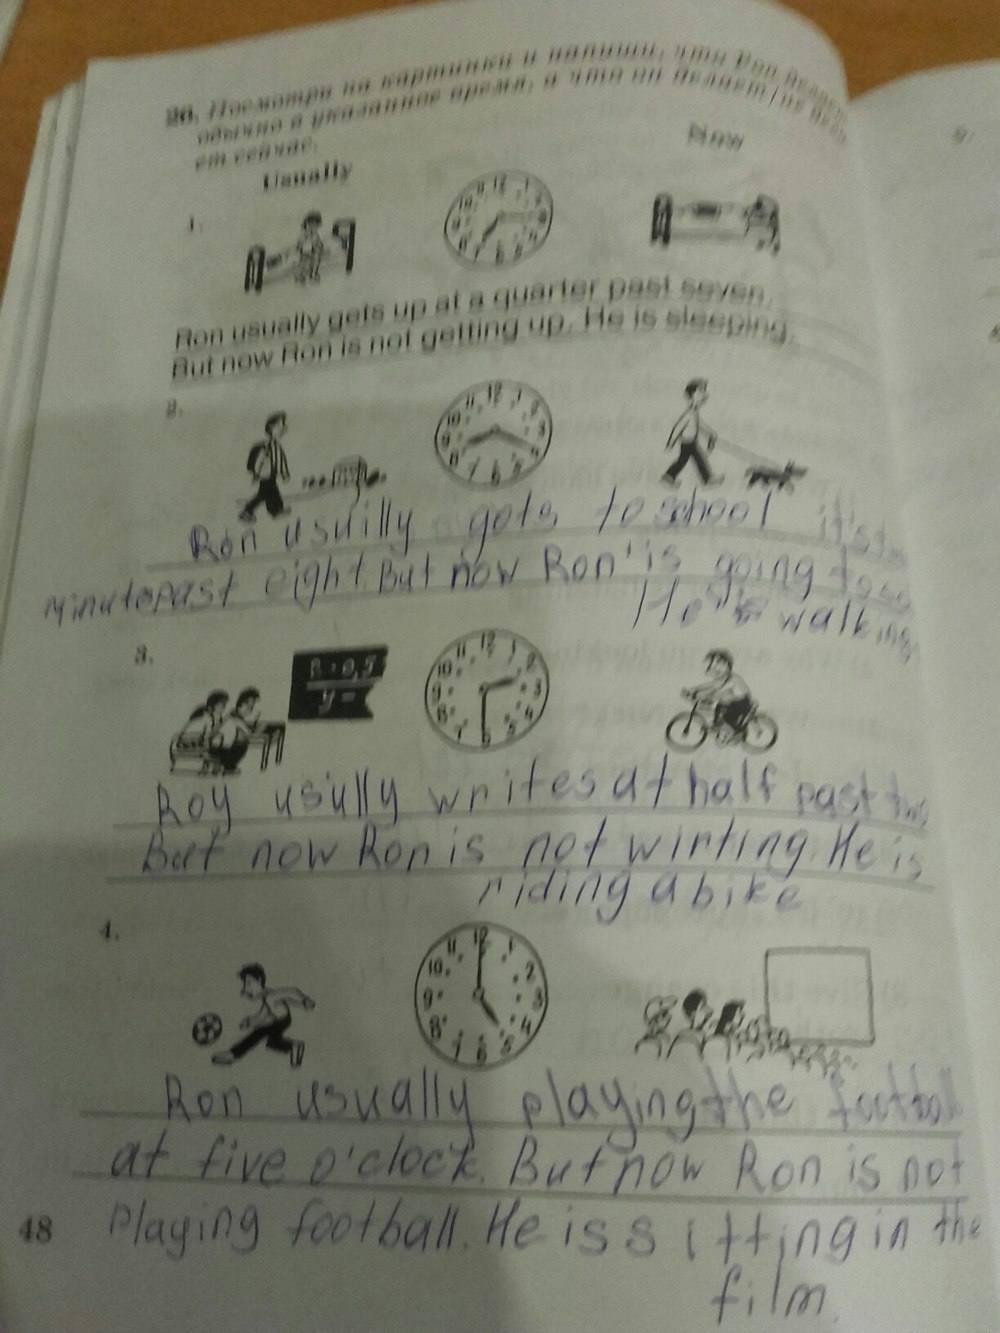 26. Посмотри на картинки и напиши, что Рон делает
обычно в указанное время, а что он делает/не дела-
ет сейчас.
Usually
Now
1.
Ron usually gets up at a quarter past seven.
But now Ron is not getting up. He is sleeping.
2.
Ron usuilly gots to school it's
minute past eight. But now Ron is going to
He is walking
3.
Roy usully writes at half past two
But now Ron is not wirting. He is
riding a bike
4.
Ron usually playing the football
at five o'clock. But now Ron is not
48 playing football. He is sitting in the
film.